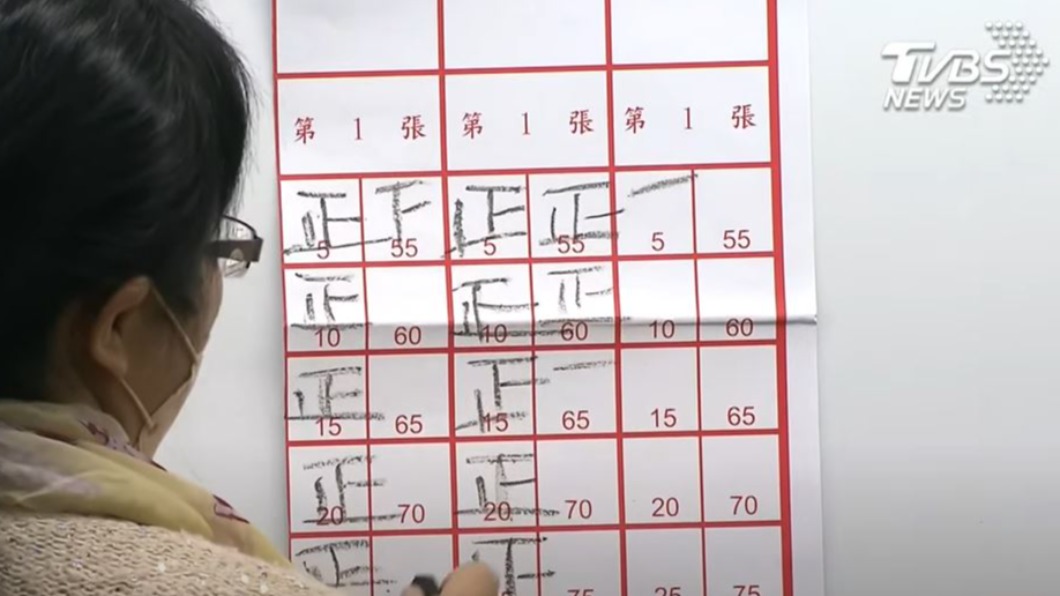 TVBS
NEWS
第 1 張 第 1 張 第 1 張
正 下 正 正 一
5 55 5 55 5 55
正 正 正
10 60 10 60 10 60
正 正 一
15 65 15 65 15 65
正 正
20 70 20 70 20 70
正 正
75 25 75